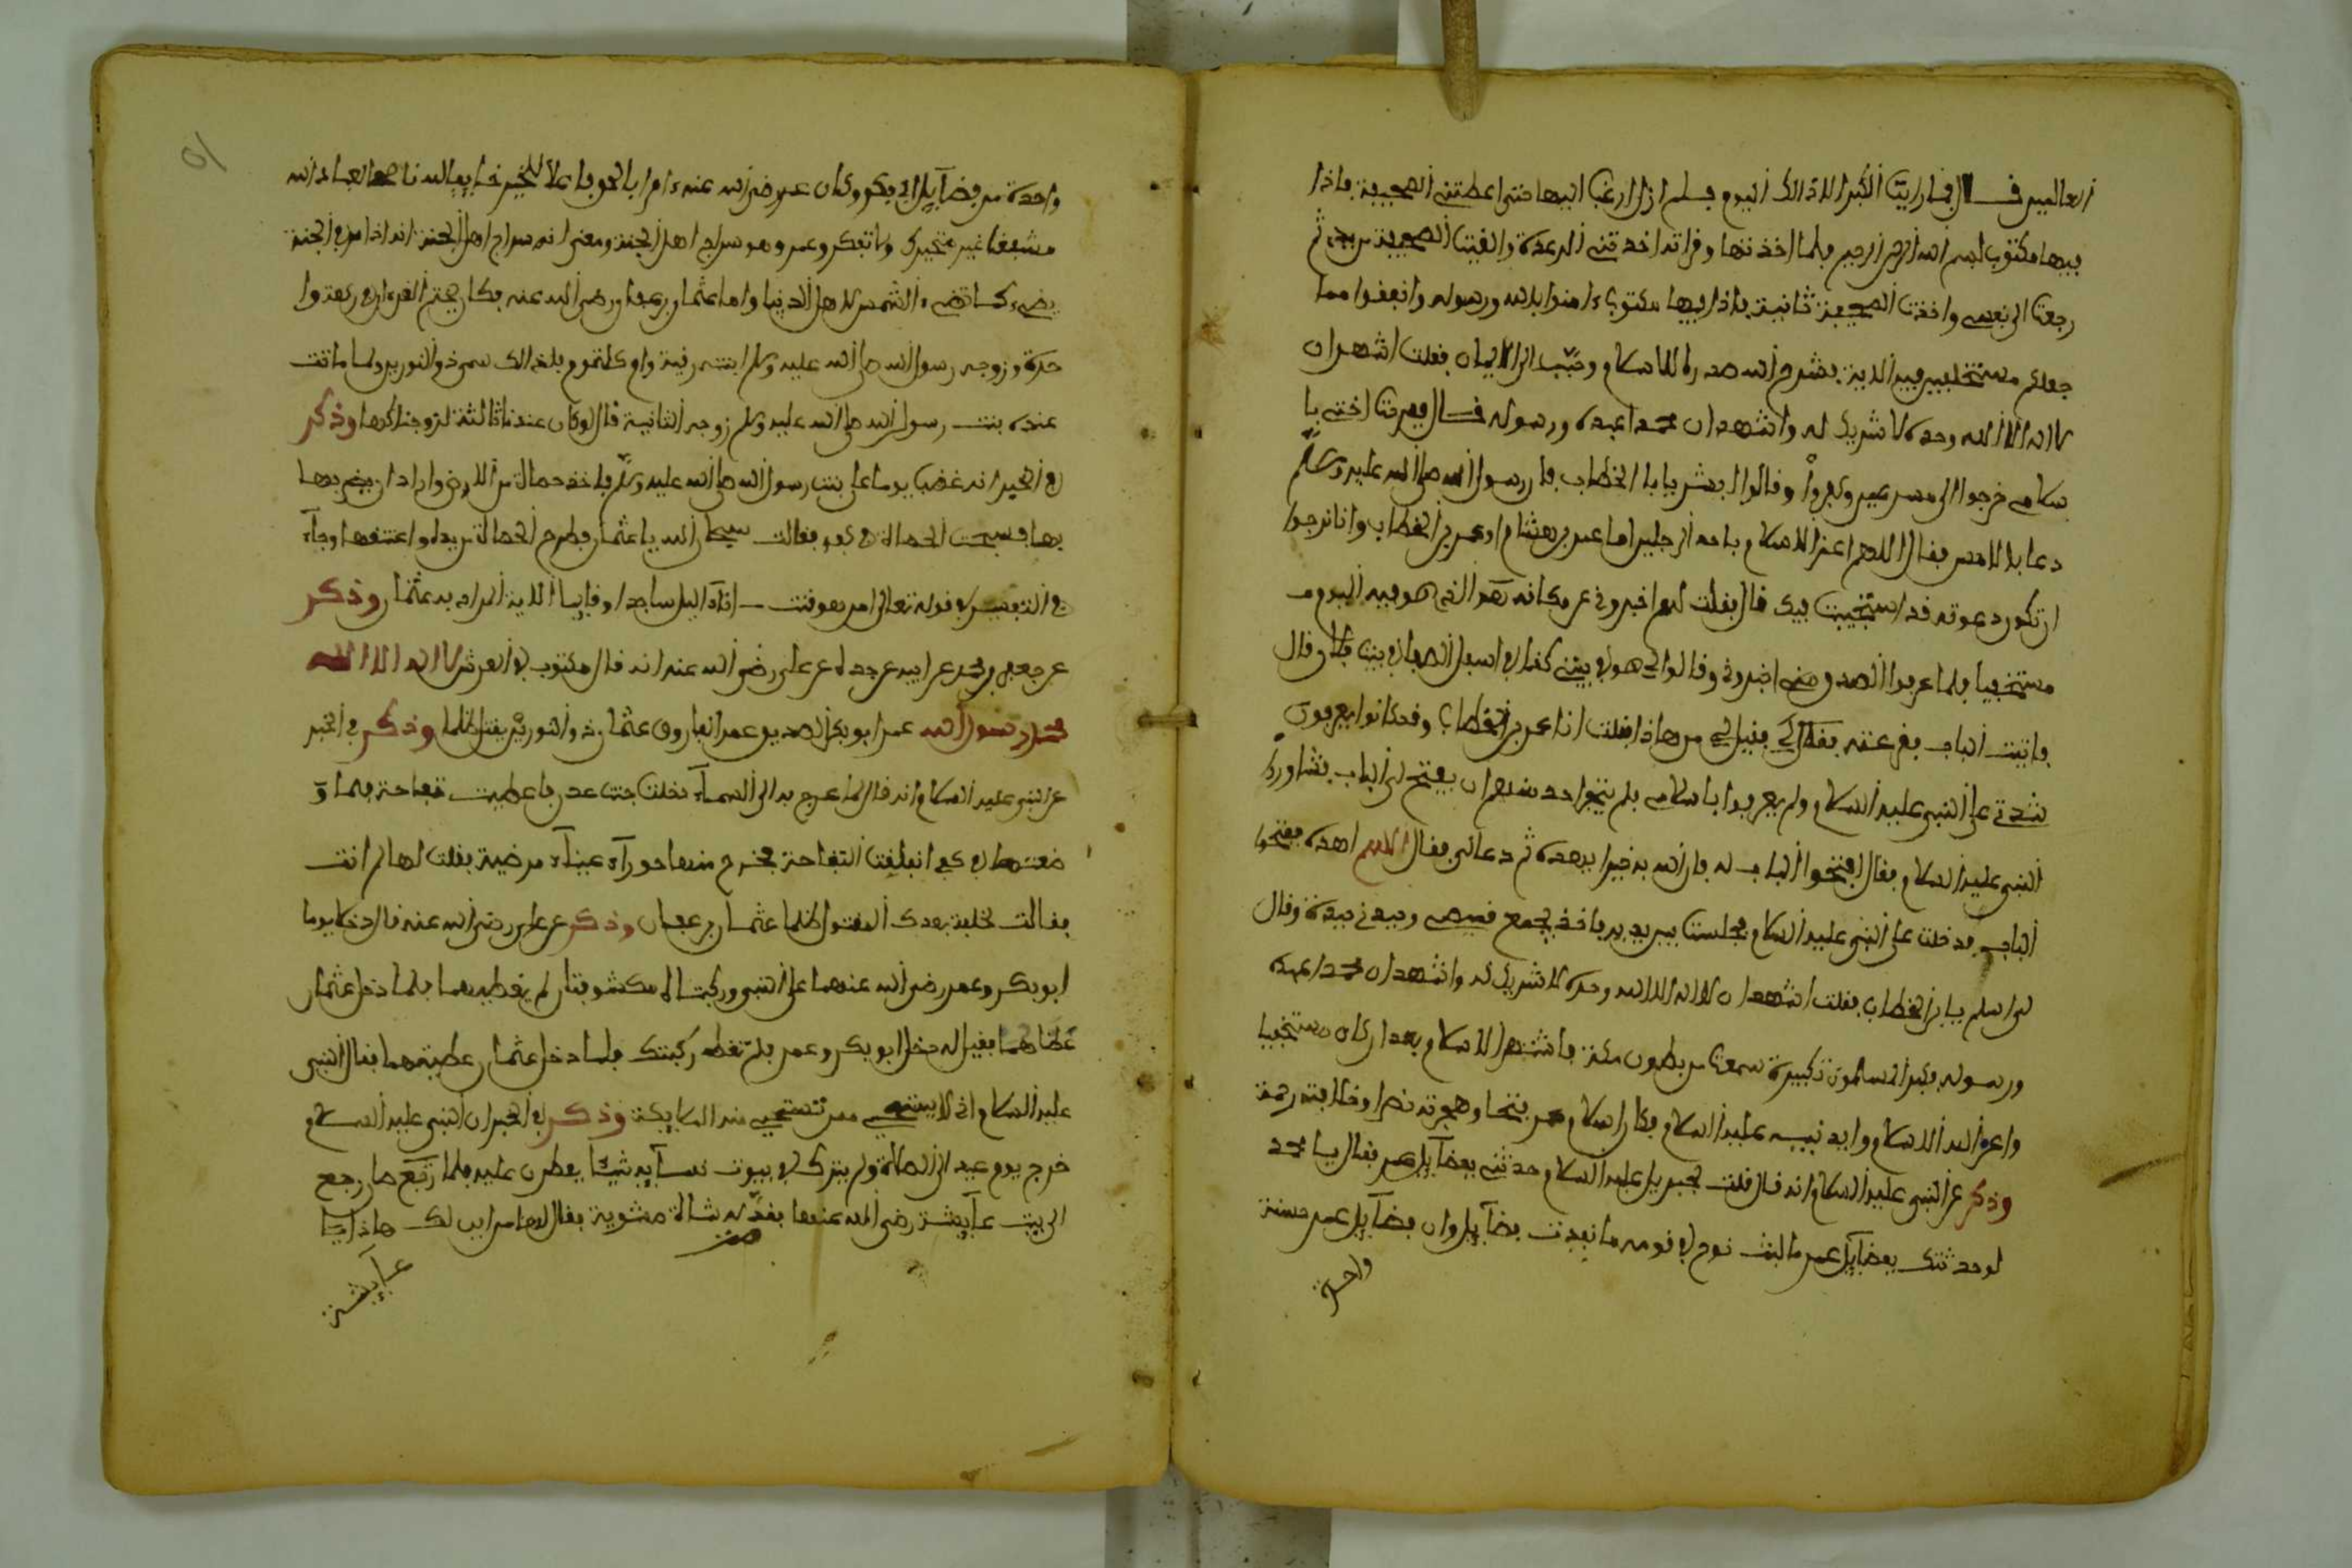 العالمين قال فما رايت الكبرا الا ذالك اليوم فلم ازل ارغب اليها حتى اعطتني الصحيفة فاذا
فيها مكتوب بسم الله الرحمن الرحيم فلما اخذتها وقراته اخذتني الرعدة والقيت الصحيفة من يدي ثم
رجعت الى نفسي واخذت الصحيفة ثانية فاذا فيها مكتوب ءامنوا بالله ورسوله وانفقوا مما
جعلكم مستخلفين فيه الاية فشرح الله صدري للاسلام وحبب الي الايمان فقلت اشهد ان
لا اله الا الله وحده لا شريك له واشهد ان محمدا عبده ورسوله قال ففرحت اختي با
سلامي خرجوا الي مسرعين وكبروا وقالوا لي ابشر يا بن الخطاب فان رسول الله صلى الله عليه وسلم
دعا بالامس فقال اللهم اعز الاسلام باحد الرجلين اما عمر بن هشام او عمر بن الخطاب وانا نرجوا
ان تكون دعوته قد استجيبت فيك قال فقلت لهم اخبروني عن مكانه هذا الذي هو فيه اليوم
مستخفيا فلما عرفوا الصدق مني اخبروني وقالوا لي هو في بيت كذا في اسفل الصفا في بيت فلان قال
فاتيت الباب فقرعته فقيل لي من هاذا فقلت انا عمر بن الخطاب وقد كانوا يعرفون
شدتي على النبي عليه السلام ولم يعرفوا باسلامي فلم يتجرا احد منهم ان يفتح لي الباب فشاوروا
النبي عليه السلام فقال افتحوا الباب له فان الله به خيرا يهده ثم دعا لي فقال اللهم اهده ففتحوا
الباب فدخلت على النبي عليه السلام فجلست بين يديه فاخذ بجمع قميصي ويدي في يده وقال
لي اسلم يا بن الخطاب فقلت اشهد ان لا اله الا الله وحده لا شريك له واشهد ان محمدا عبده
ورسوله فكبر المسلمون تكبيرة سمعت من بطون مكة فاشتهر الاسلام بعد ان كان مستخفيا
واعز الله الاسلام وايد نبيه عليه السلام فكان اسلام عمر فتحا وهجرته نصرا وخلافته رحمة
وذكر عن النبي عليه السلام انه قال قلت لجبريل عليه السلام حدثني بفضآيل عمر فقال يا محمد
لو حدثتك بفضآيل عمر ما لبث نوح في قومه ما نفدت فضآيل وان فضآيل عمر حسنة
واحدة
واحدة من فضآيل ابي بكر وكان عمر رضي الله عنه ءامرا بالحق فاعلا للخير خايفا لله ناصحا لعباد الله
مشفقا غير متجبر ولا متكبر وعمر هو سراج اهل الجنة ومعنى انه سراج اهل الجنة انه اذا مر في الجنة
يضيء كما تضيء الشمس لاهل الدنيا واما عثمان بن عفان رضي الله عنه فكان يختم القرءان في ركعة وا
حدة وزوجه رسول الله صلى الله عليه وسلم ابنتيه رقية وام كلثوم فلذالك سمي ذو النورين ولما ماتت
عنده بنت رسول الله صلى الله عليه وسلم زوجه الثانية قال لو كان عندنا ثالثة لزوجناكها وذكر
في الخبر انه غضب يوما على بنت رسول الله صلى الله عليه وسلم فاخذ حصاة من الارض واراد ان يضربها
بها فسبحت الحصاة في كفه فقالت سبحان الله يا عثمان فطرح الحصاة من يده واعتنقها وجآء
في التفسير في قوله تعالى امن هو قنت ءانآء اليل ساجدا وقايما الاية المراد به عثمان وذكر
عن جعفر بن محمد عن ابيه عن جده عن علي رضي الله عنه انه قال مكتوب في العرش لا اله الا الله
محمد رسول الله عمر ابو بكر الصديق عمر الفاروق عثمان ذو النورين يقتل ظلما وذكر في الخبر
عن النبي عليه السلام انه قال لما عرج بي الى السمآء دخلت جنة عدن فاعطيت تفاحة فلما و
ضعتها في كفي انفلقت التفاحة فخرج منها حورآء عينآء مرضية فقلت لها لمن انت
فقالت لخليفة بعدك المقتول ظلما عثمان بن عفان وذكر عن علي رضي الله عنه قال دخلا يوما
ابو بكر وعمر رضي الله عنهما على النبي وركبتاه مكشوفتان لم يغطيهما فلما دخل عثمان
غطاهما فقيل له دخل ابو بكر وعمر فلم تغط ركبتك فلما دخل عثمان غطيتهما فقال النبي
عليه السلام اني لا استحيي ممن تستحيي منه الملايكة وذكر في الخبر ان النبي عليه السلام
خرج يوم عيد الى الصلاة ولم يترك في بيوت نسآيه شيئا يفطرن عليه فلما رجع
الى بيت عآيشة رضي الله عنها بقدر له شاة مشوية فقال لها من اين لك هاذا يا
عآيشة